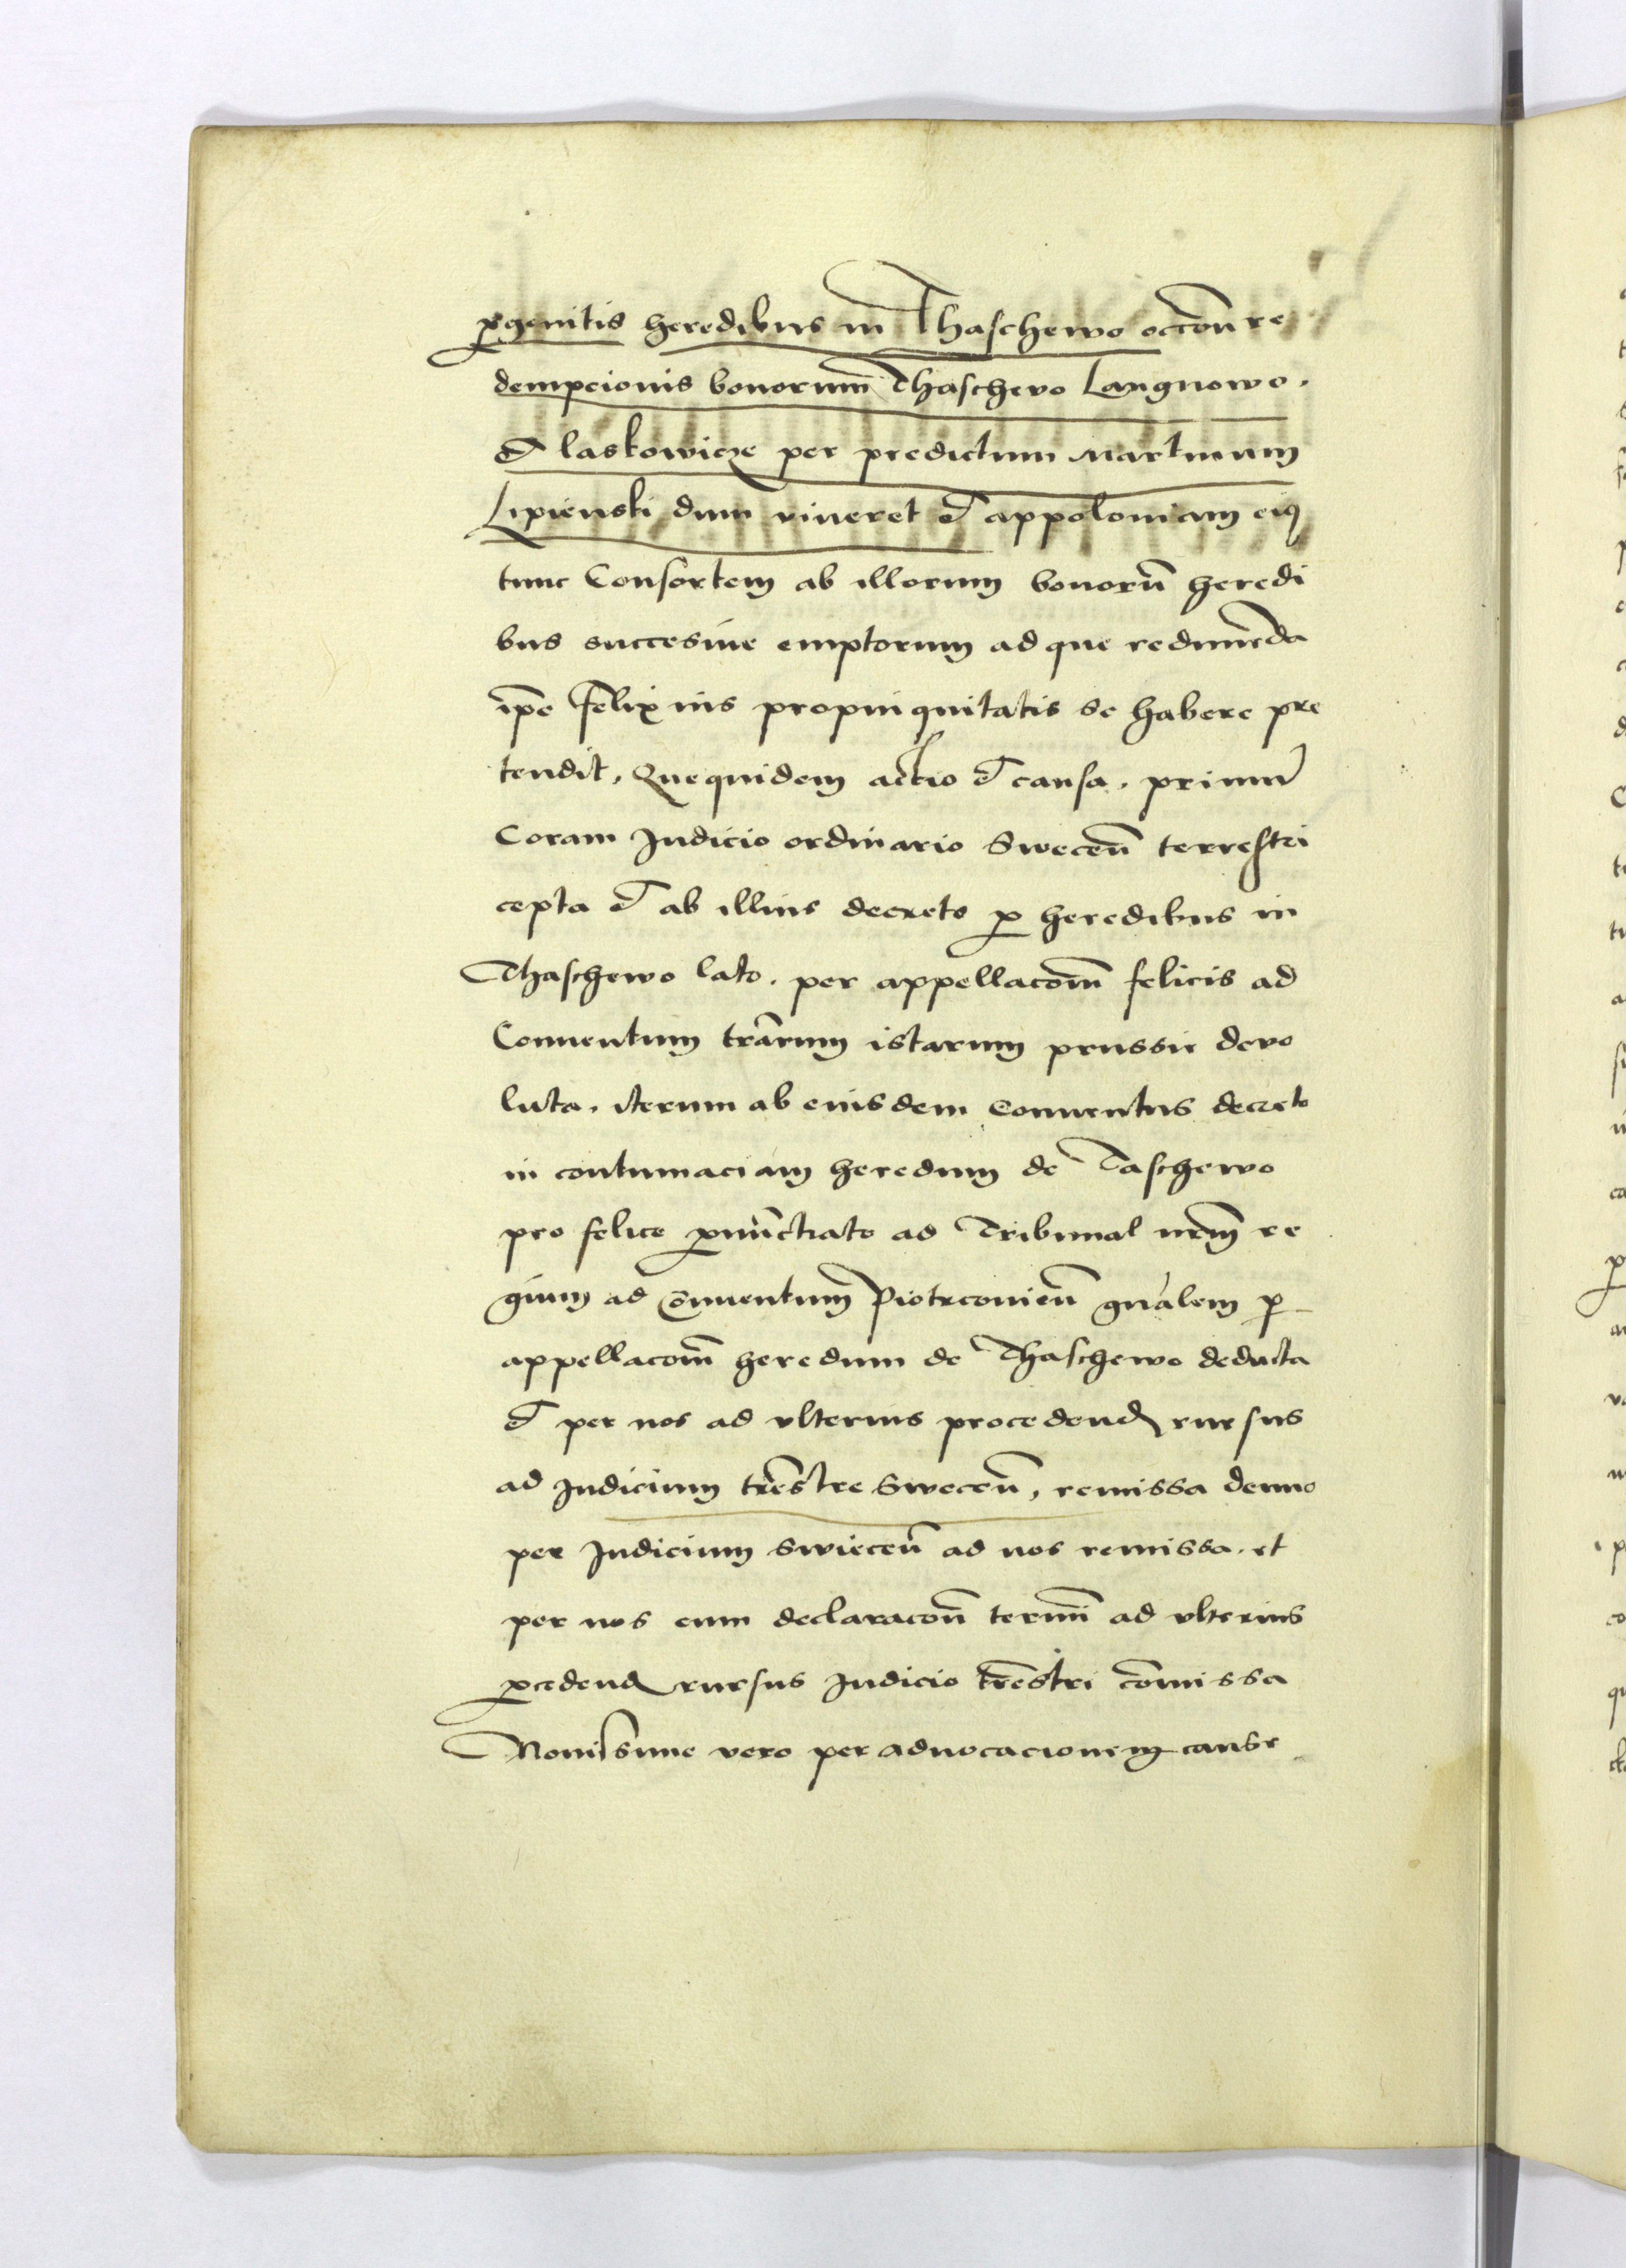 ꝓgenitis heredibus in Thaschewo occon̄e re
dempcionis bonorum Thaschevo Langnowo.
et laskowicze per predictum Martinum
Lipienski dum viueret et appoloniam eiꝰ
tunc Consortem ab illorum bonorū heredi
bus succesiue emptorum ad que redimēda
ip̄e felix ius propinquitatis se habere pre
tendit, Quequidem actio et causa. primū
Coram Judicio ordinario Swecen̄ terrestri
cepta et ab illius decreto ꝓ heredibus in
Thaschewo lato. per appellacōm felicis ad
Conuentum trārum istarum prussie devo
luta. iterum ab eiusdem Conuentus decreto
in contumaciam heredum de Taschewo
pro felice ꝓnūctiato ad Tribunal nr̄m re
gium ad cōnuentum Piotrconien̄ gn̄alem ꝑ
appellacōm heredum de Thaschewo deducta
et per nos ad vlterius procedend rursus
ad Judicium trēstre Swecen̄, remissa denuo
per Judicium Swiecen̄ ad nos remissa. et
per nos cum declaracōn termī ad vlterius
ꝓcedend rursus Judicio trēstri cōmissa
Nouissime vero per aduocacionem cause